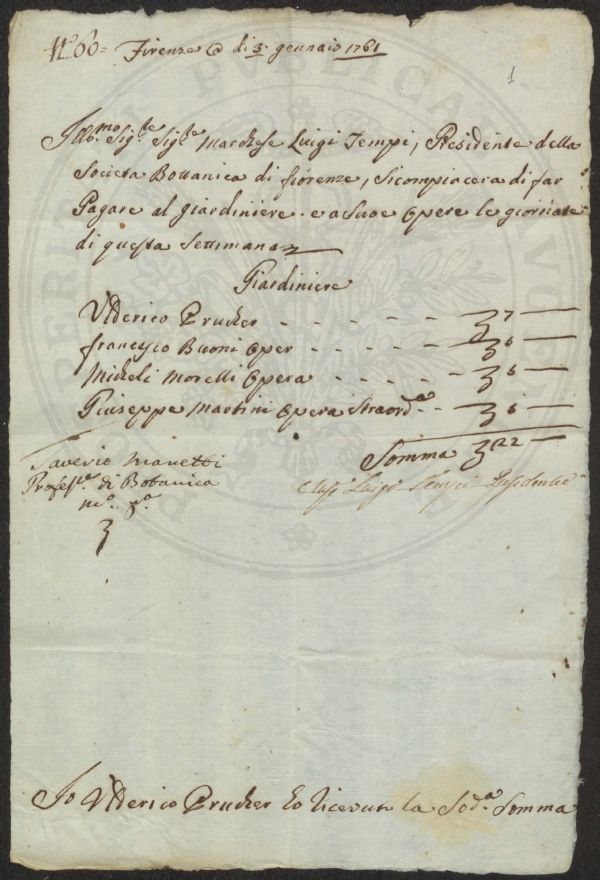 N.º 60= Firenze @ di 3. gennaio 1761
1
Ill.mo Sig.re Sig.re Marchese Luigi Tempi, Presidente della
Societa Bottanica di fiorenze, Sicompiacera di far
Pagare al giardiniere. e a Suoe Opere le giornate
di questa Settimana
Giardiniere
Vlderico Prucker - - - - - 7 —
francesco Buoni Oper - - - - 
Micheli Morelli Opera - - - - 
Giuseppe Martini Opera Straord.a - - 
Somma 22 —
Saverio Manetti
Profess.e di Botanica
m.o p.a
Luigi Tempi Presidente
Io Vlderico Prucker ho Ricevuto la Sod.a Somma